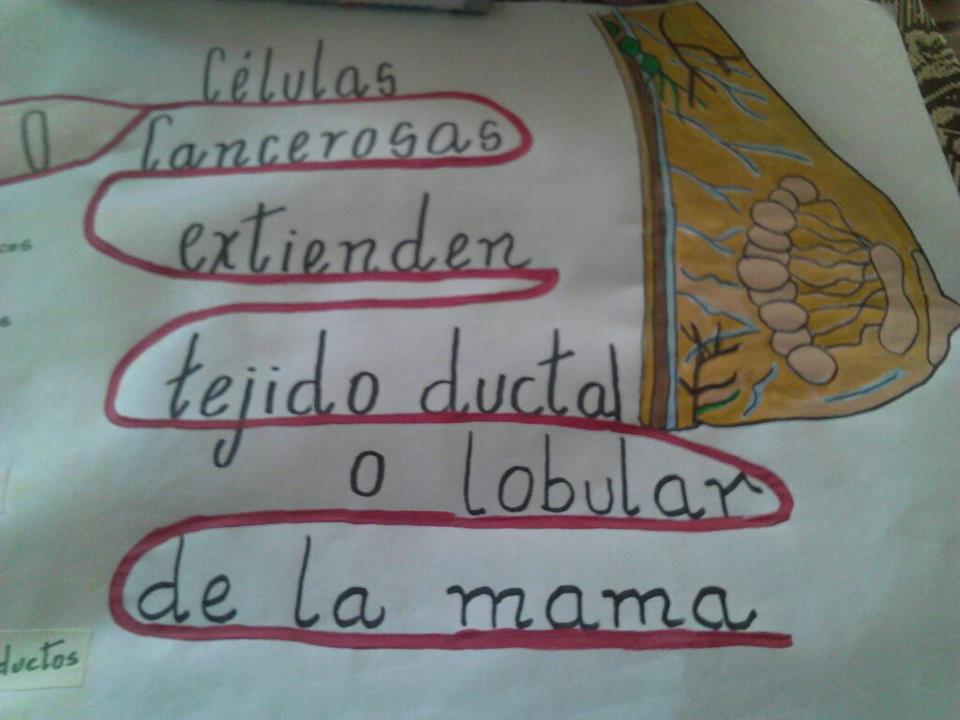 Células
O Cancerosas
extienden
tejido ductal
o lobular
de la mama
ductos